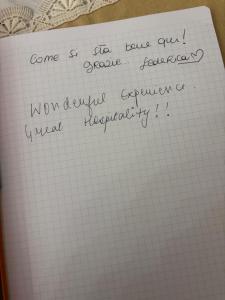 Come si sta bene qui!
grazie.. Federica♡
Wonderful Experience.
Great Hospitality!!